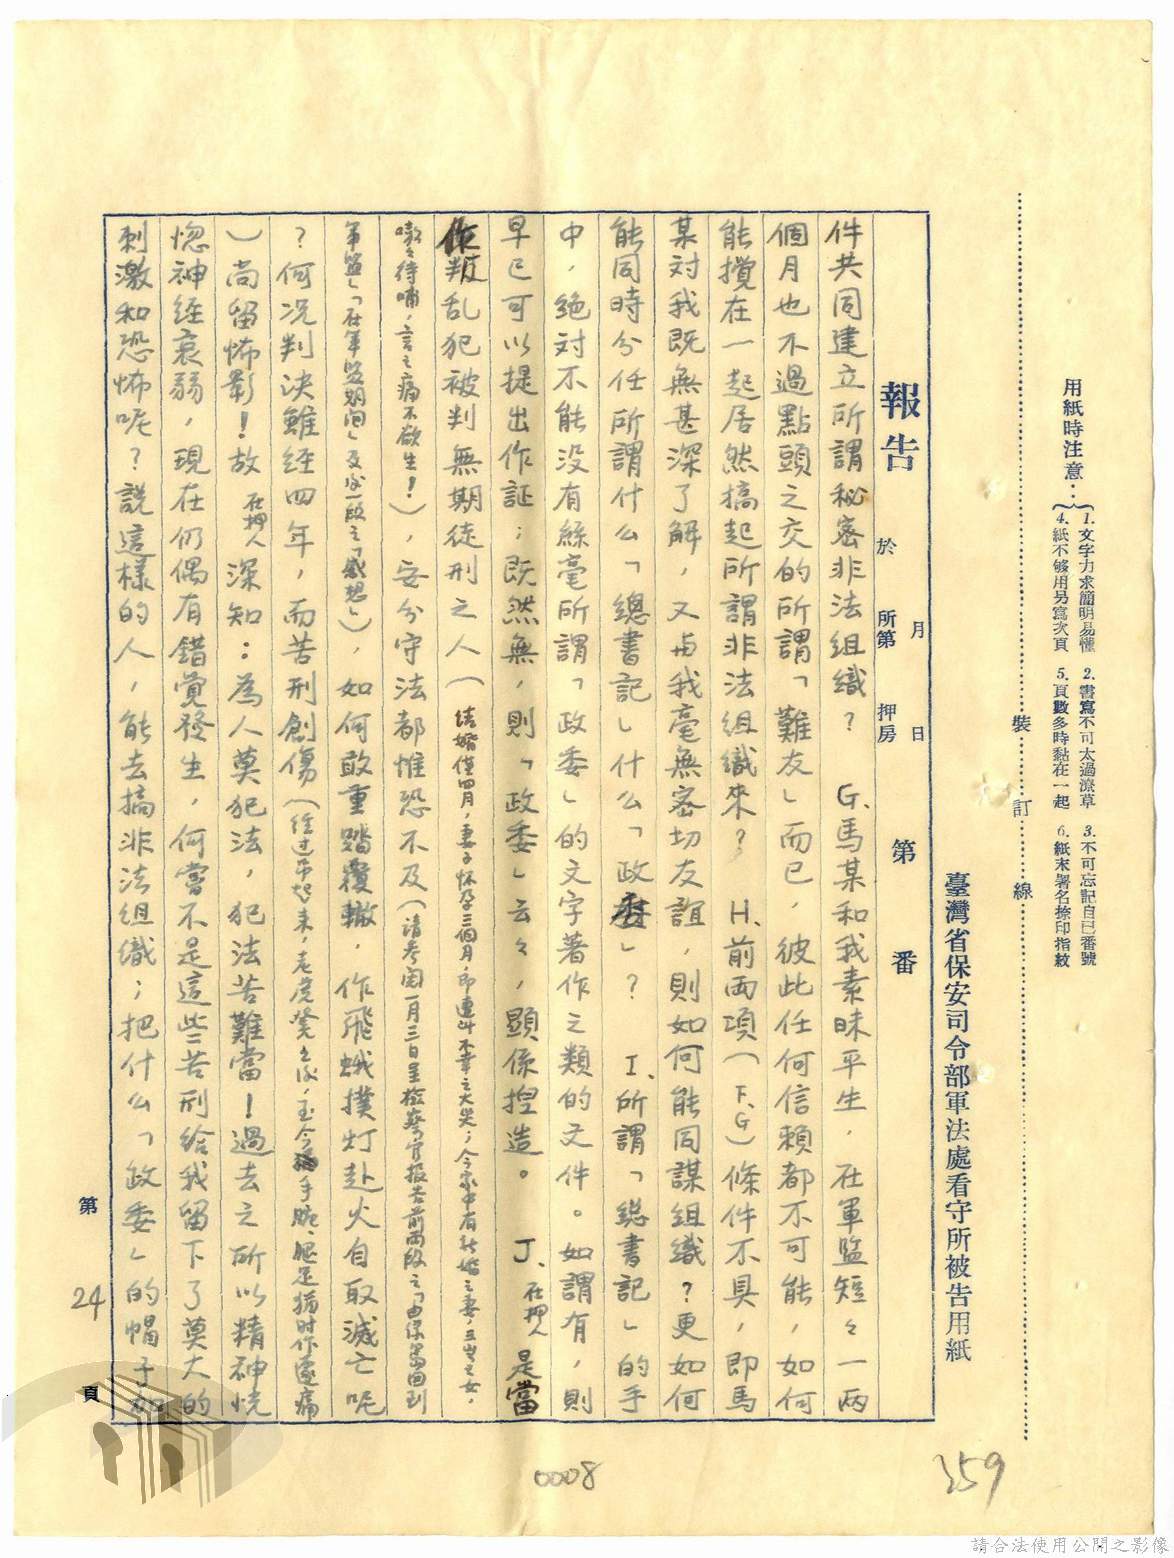 用紙時注意：
1. 文字力求簡明易懂 2. 書寫不可太過潦草 3. 不可忘記自己番號
4. 紙不够用另寫次頁 5. 頁數多時黏在一起 6. 紙末署名捺印指紋
裝 訂 線
臺灣省保安司令部軍法處看守所被告用紙
報告 於 所第 押房 月 日 第 番
件共同建立所謂秘密非法組織？ G、馬某和我素昧平生，在軍監短々一兩
個月也不過點頭之交的所謂「難友」而已，彼此任何信賴都不可能，如何
能攪在一起居然搞起所謂非法組織來？ H、前兩項（F、G）條件不具，即馬
某對我既無甚深了解，又與我毫無密切友誼，則如何能同謀組織？更如何
能同時分任所謂什么「總書記」什么「政委」？ I、所謂「總書記」的手
中，絕对不能没有絲毫所謂「政委」的文字著作之類的文件。如謂有，則
早已可以提出作証；既然無，則「政委」云々，顯係捏造。 J、在押人是當
作叛乱犯被判無期徒刑之人（結婚僅四月，妻子怀孕三個月，即遭此不幸之大災；今家中有新婚之妻，三岁之女，
嗷々待哺，言之痛不欲生！），安分守法都惟恐不及（請参閱一月三日呈檢察官报告前兩段之「由保安處回到
軍監」「在軍监期间」及後一段之「感想」），如何敢重踏覆轍，作飛蛾撲灯赴火自取滅亡呢
？何况判決雖经四年，而苦刑創傷（经过吊起来，老虎凳之後，至今手腕、腿足猶时作隱痛
）尚留怖影！故在押人深知：為人莫犯法，犯法苦難當！過去之所以精神恍
惚神经衰弱，現在仍偶有錯覚發生，何嘗不是這些苦刑给我留下了莫大的
刺激和恐怖呢？說這樣的人，能去搞非法組織；把什么「政委」的帽子加
第 24 頁
0008
359
請合法使用公開之影像